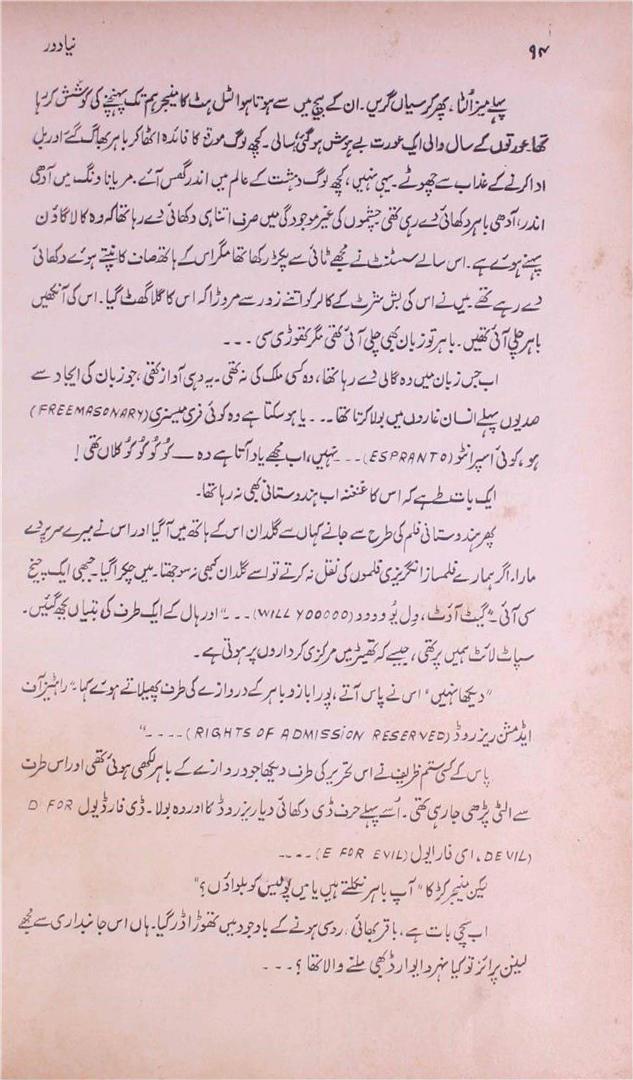 ۹۴ نیا دور
پہلے میز اُلٹا، پھر کرسیاں گریں۔ ان کے بیچ میں سے ہوتا ہوا لٹل ہٹ کا منیجر ہم تک پہنچنے کی کوشش کر رہا
تھا۔ عورتوں کے سال والی ایک عورت بے ہوش ہو گئی سالی۔ کچھ لوگ موقع کا فائدہ اٹھا کر باہر بھاگ گئے اور بل
ادا کرنے کے عذاب سے چھوٹے۔ یہی نہیں، کچھ لوگ دہشت کے عالم میں اندر گھس آئے۔ مریانا ونگ میں آدھی
اندر، آدھی باہر دکھائی دے رہی تھی چشموں کی غیر موجودگی میں صرف اتنا ہی دکھائی دے رہا تھا کہ وہ کالا گاؤن
پہنے ہوئے ہے۔ اس سالے سسٹنٹ نے مجھے ٹائی سے پکڑ رکھا تھا مگر اس کے ہاتھ صاف کانپتے ہوئے دکھائی
دے رہے تھے۔ میں نے اس کی بش شرٹ کے کالر کو اتنے زور سے مروڑا کہ اس کا گلا گھٹ گیا۔ اس کی آنکھیں
باہر چلی آئی تھیں۔ باہر تو زبان بھی چلی آئی تھی مگر تھوڑی سی ۔۔۔
اب جس زبان میں وہ گالی دے رہا تھا، وہ کسی ملک کی نہ تھی۔ یہ وہی آواز تھی، جو زبان کی ایجاد سے
صدیوں پہلے انسان غاروں میں بولا کرتا تھا ۔۔۔ یا ہو سکتا ہے وہ کوئی فری میسنری (FREEMASONARY)
ہو، کوئی اسپرانٹو (ESPRANTO) ۔۔۔ نہیں، اب مجھے یاد آتا ہے وہ — گُو گُو گُو گُو کلاں تھی!
ایک بات طے ہے کہ اس کا غنغنہ اب ہندوستانی بھی نہ رہا تھا۔
پھر ہندوستانی فلم کی طرح سے جانے کہاں سے گلدان اس کے ہاتھ میں آ گیا اور اس نے میرے سر پر دے
مارا۔ اگر ہمارے فلمساز انگریزی فلموں کی نقل نہ کرتے تو اسے گلدان کبھی نہ سوجھتا۔ میں چکرا گیا۔ جبھی ایک چیخ
سی آئی۔ "گیٹ آؤٹ، وِل یُو ووود (WILL YOOOOO) ۔۔۔" اور ہال کے ایک طرف کی بتیاں بجھ گئیں۔
سپاٹ لائٹ ہمیں پر تھی، جیسے کہ تھیٹر میں مرکزی کرداروں پر ہوتی ہے۔
"دیکھا نہیں" اس نے پاس آتے، پورا بازو باہر کے دروازے کی طرف پھیلاتے ہوئے کہا۔ "رائٹیز آن
ایڈمشن ریزروڈ (RIGHTS OF ADMISSION RESERVED) ۔۔۔۔"
پاس کے کسی ستم ظریف نے اس تحریر کی طرف دیکھا جو دروازے کے باہر لکھی ہوئی تھی اور اس طرف
سے الٹی پڑھی جا رہی تھی۔ اُسے پہلے حرف ڈی دکھائی دیا ریزروڈ کا اور وہ بولا۔ ڈی فار ڈیول D FOR
DEVIL)، ای فار ایول (E FOR EVIL) ۔۔۔۔
لیکن منیجر کڑکا "آپ باہر نکلتے ہیں یا میں پولیس کو بلواؤں؟"
اب سچی بات ہے، باقر بھائی، ردسی ہونے کے باوجود میں تھوڑا ڈر گیا۔ ہاں اس جانبداری سے مجھے
لینن پرائز تو کیا نہرو ایوارڈ بھی ملنے والا تھا؟ ۔۔۔